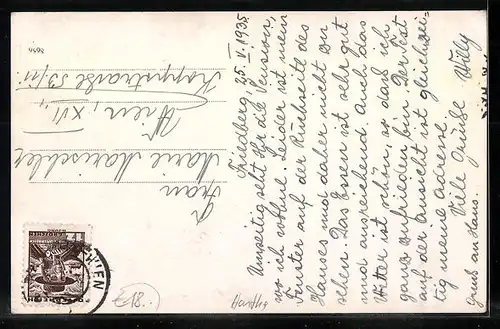 Friedberg 25. V. 1935.
Umseitig seht Ihr die Pension,
wo ich wohne. Leider ist mein
Fenster auf der Rückseite des
Hauses und daher nicht zu
sehen. Das Essen ist sehr gut
und ausreichend. Auch das
Wetter ist schön, so daß ich
ganz zufrieden bin. Der Text
auf der Ansicht ist gleichzei-
tig meine Adresse.
Viele Grüße Willy
Gruß an Hans.
Frau
Marie
Wien, XVI
Koppstraße 53/11
GROSCHEN
WIEN